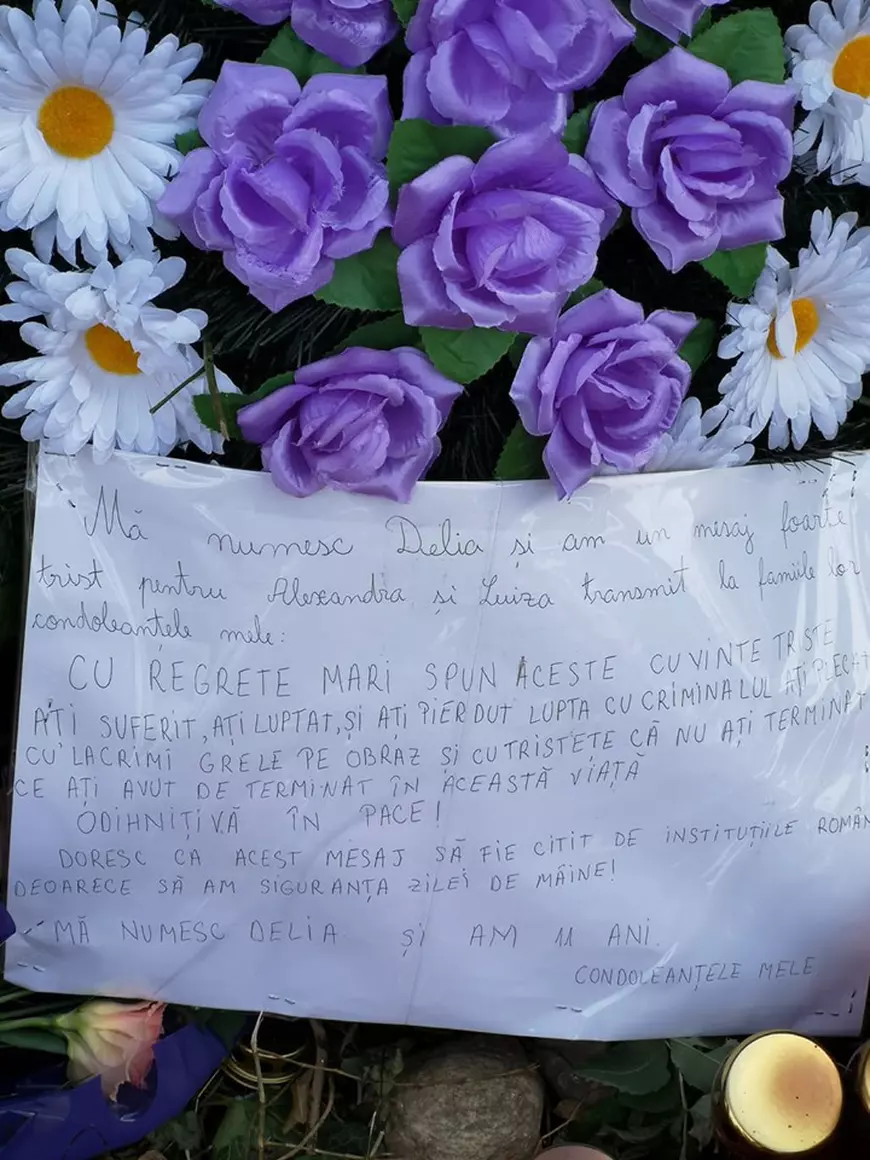 Mă numesc Delia și am un mesaj foarte
trist pentru Alexandra și Luiza transmit la familie lor
condoleanțele mele:
CU REGRETE MARI SPUN ACESTE CUVINTE TRISTE
AȚI SUFERIT, AȚI LUPTAT, ȘI AȚI PIERDUT LUPTA CU CRIMINALUL AȚI PLECAT
CU LACRIMI GRELE PE OBRAZ ȘI CU TRISTEȚE CĂ NU AȚI TERMINAT
CE AȚI AVUT DE TERMINAT ÎN ACEASTĂ VIAȚĂ
ODIHNIȚIVĂ ÎN PACE!
DORESC CA ACEST MESAJ SĂ FIE CITIT DE INSTITUȚIILE ROMÂN
DEOARECE SĂ AM SIGURANȚA ZILEI DE MÂINE!
MĂ NUMESC DELIA ȘI AM 11 ANI.
CONDOLEANȚELE MELE